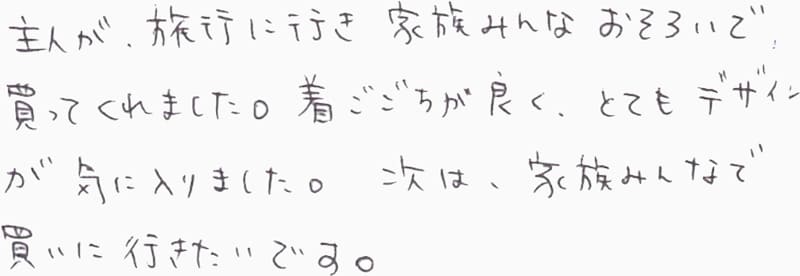 主人が、旅行に行き 家族みんな おそろいで、
買ってくれました。着ごごちが良く、とてもデザイン
が 気に入りました。 次は、家族みんなで
買いに行きたいです。